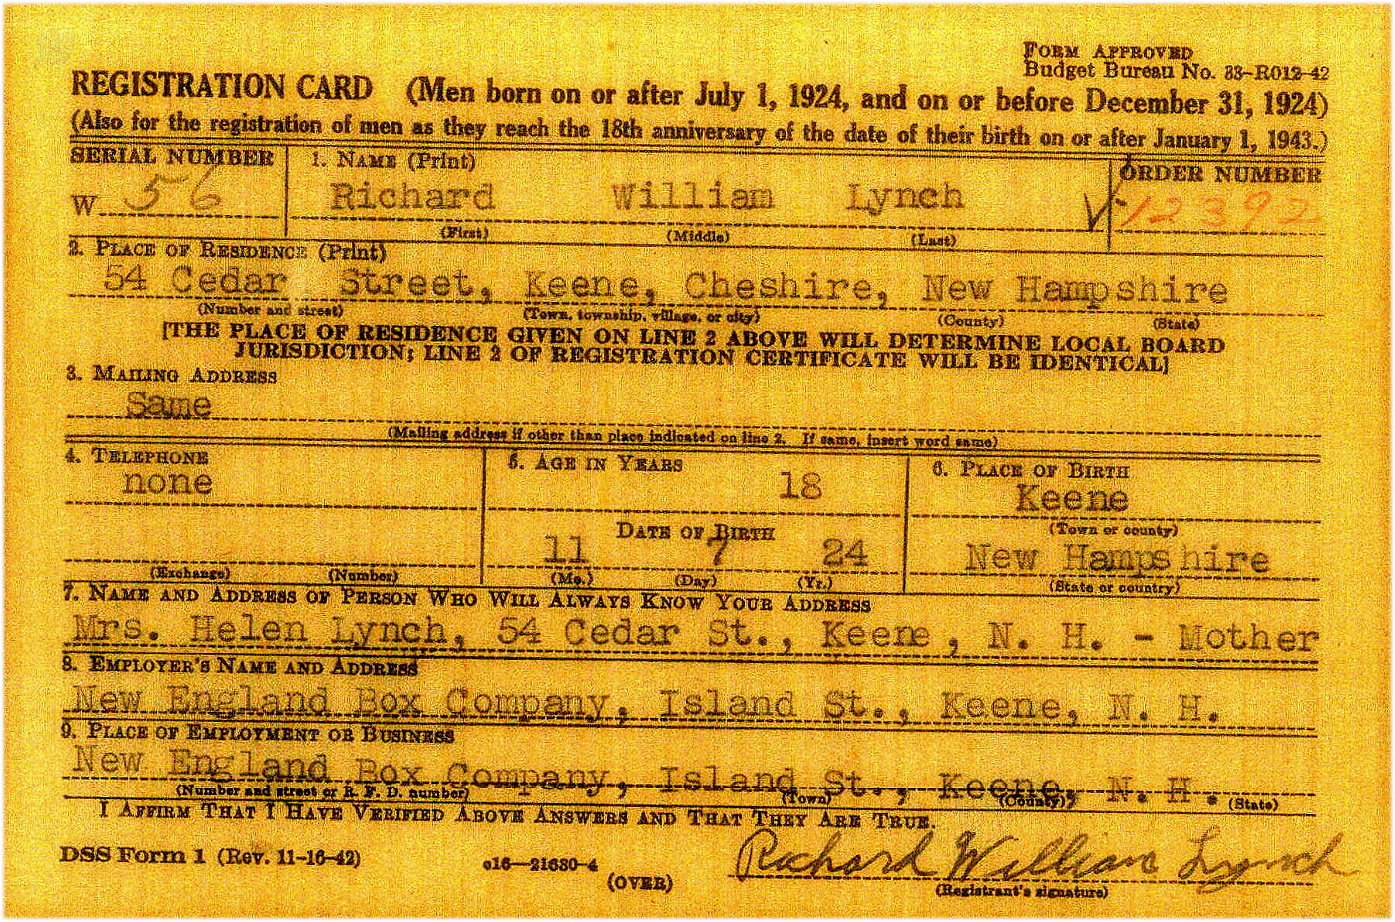 FORM APPROVED
Budget Bureau No. 33-R012-42
REGISTRATION CARD (Men born on or after July 1, 1924, and on or before December 31, 1924)
(Also for the registration of men as they reach the 18th anniversary of the date of their birth on or after January 1, 1943.)
SERIAL NUMBER 1. NAME (Print) ORDER NUMBER
W 56 Richard William Lynch 12392
(First) (Middle) (Last)
2. PLACE OF RESIDENCE (Print)
54 Cedar Street, Keene, Cheshire, New Hampshire
(Number and street) (Town, township, village, or city) (County) (State)
[THE PLACE OF RESIDENCE GIVEN ON LINE 2 ABOVE WILL DETERMINE LOCAL BOARD
JURISDICTION; LINE 2 OF REGISTRATION CERTIFICATE WILL BE IDENTICAL]
3. MAILING ADDRESS
Same
(Mailing address if other than place indicated on line 2. If same, insert word same)
4. TELEPHONE 5. AGE IN YEARS 6. PLACE OF BIRTH
none 18 Keene
(Town or county)
DATE OF BIRTH
11 7 24 New Hampshire
(Exchange) (Number) (Mo.) (Day) (Yr.) (State or country)
7. NAME AND ADDRESS OF PERSON WHO WILL ALWAYS KNOW YOUR ADDRESS
Mrs. Helen Lynch, 54 Cedar St., Keene, N. H. - Mother
8. EMPLOYER'S NAME AND ADDRESS
New England Box Company, Island St., Keene, N. H.
9. PLACE OF EMPLOYMENT OR BUSINESS
New England Box Company, Island St., Keene, N. H.
(Number and street or R. F. D. number) (Town) (County) (State)
I AFFIRM THAT I HAVE VERIFIED ABOVE ANSWERS AND THAT THEY ARE TRUE.
DSS Form 1 (Rev. 11-16-42) c16—21630-4 Richard William Lynch
(OVER) (Registrant's signature)